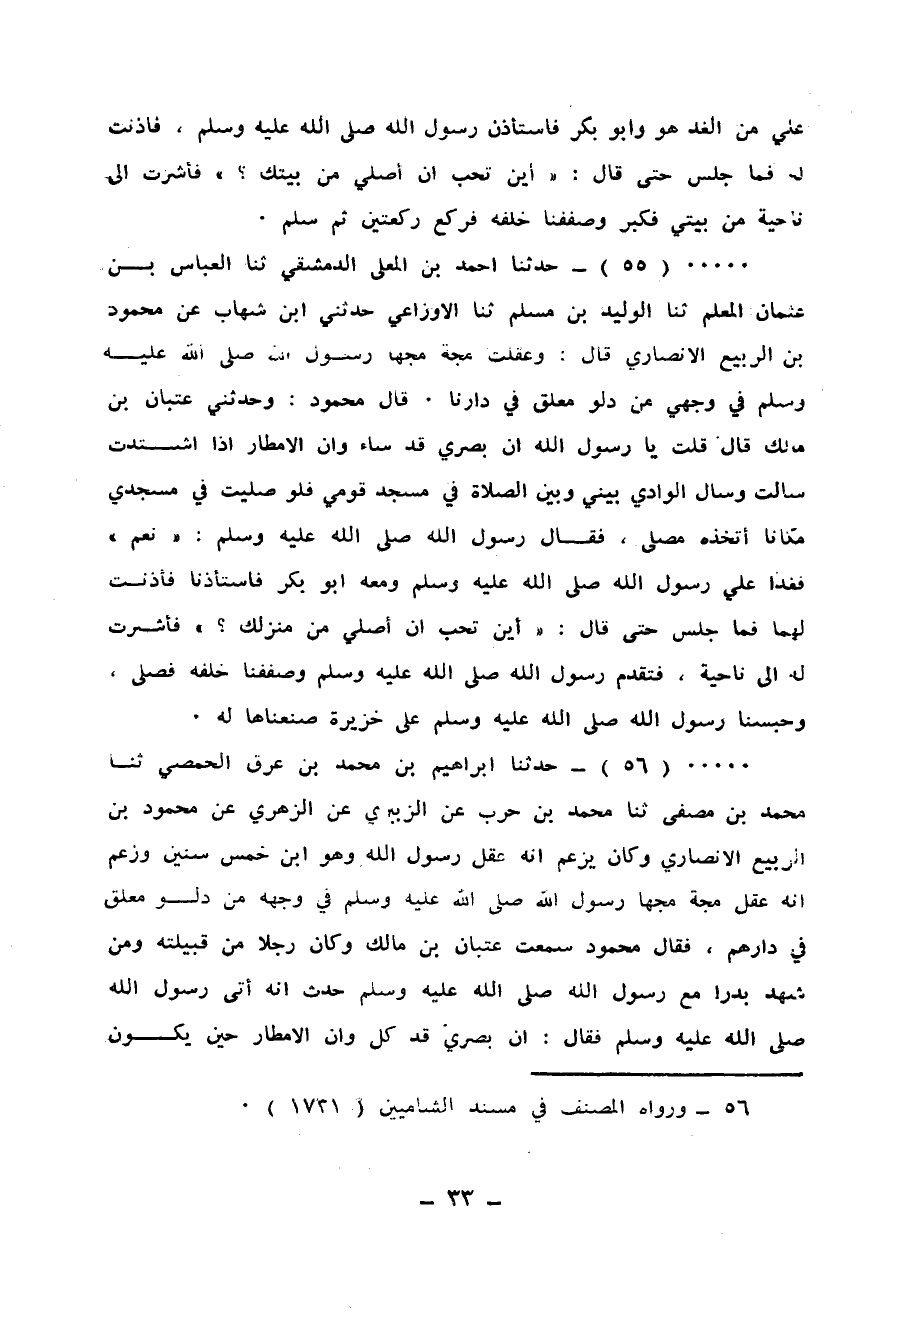 علي من الغد هو وابو بكر فاستأذن رسول الله صلى الله عليه وسلم ، فاذنت
له فما جلس حتى قال : « أين تحب ان أصلي من بيتك ؟ » فأشرت الى
ناحية من بيتي فكبر وصففنا خلفه فركع ركعتين ثم سلم ٠
٠٠٠٠٠ ( ٥٥ ) ــ حدثنا احمد بن المعلى الدمشقي ثنا العباس بـــن
عثمان المعلم ثنا الوليد بن مسلم ثنا الاوزاعي حدثني ابن شهاب عن محمود
بن الربيع الانصاري قال : وعقلت مجة مجها رسـول الله صلى الله عليـــه
وسلم في وجهي من دلو معلق في دارنا ٠ قال محمود : وحدثني عتبان بن
مالك قال قلت يا رسول الله ان بصري قد ساء وان الامطار اذا اشــتدت
سالت وسال الوادي بيني وبين الصلاة في مسجد قومي فلو صليت في مسجدي
مكانا أتخذه مصلى ، فقـــال رسول الله صلى الله عليه وسلم : « نعم »
فغدا علي رسول الله صلى الله عليه وسلم ومعه ابو بكر فاستأذنا فأذنــت
لهما فما جلس حتى قال : « أين تحب ان أصلي من منزلك ؟ » فأشـرت
له الى ناحية ، فتقدم رسول الله صلى الله عليه وسلم وصففنا خلفه فصلى ،
وحبسنا رسول الله صلى الله عليه وسلم على خزيرة صنعناها له ٠
٠٠٠٠٠ ( ٥٦ ) ــ حدثنا ابراهيم بن محمد بن عرق الحمصي ثنــا
محمد بن مصفى ثنا محمد بن حرب عن الزبيدي عن الزهري عن محمود بن
الربيع الانصاري وكان يزعم انه عقل رسول الله وهو ابن خمس سنين وزعم
انه عقل مجة مجها رسول الله صلى الله عليه وسلم في وجهه من دلـــو معلق
في دارهم ، فقال محمود سمعت عتبان بن مالك وكان رجلا من قبيلته ومن
شهد بدرا مع رسول الله صلى الله عليه وسلم حدث انه أتى رسول الله
صلى الله عليه وسلم فقال : ان بصري قد كل وان الامطار حين يكـــون
٥٦ ــ ورواه المصنف في مسند الشاميين ( ١٧٢١ ) ٠
ــ ٣٣ ــ